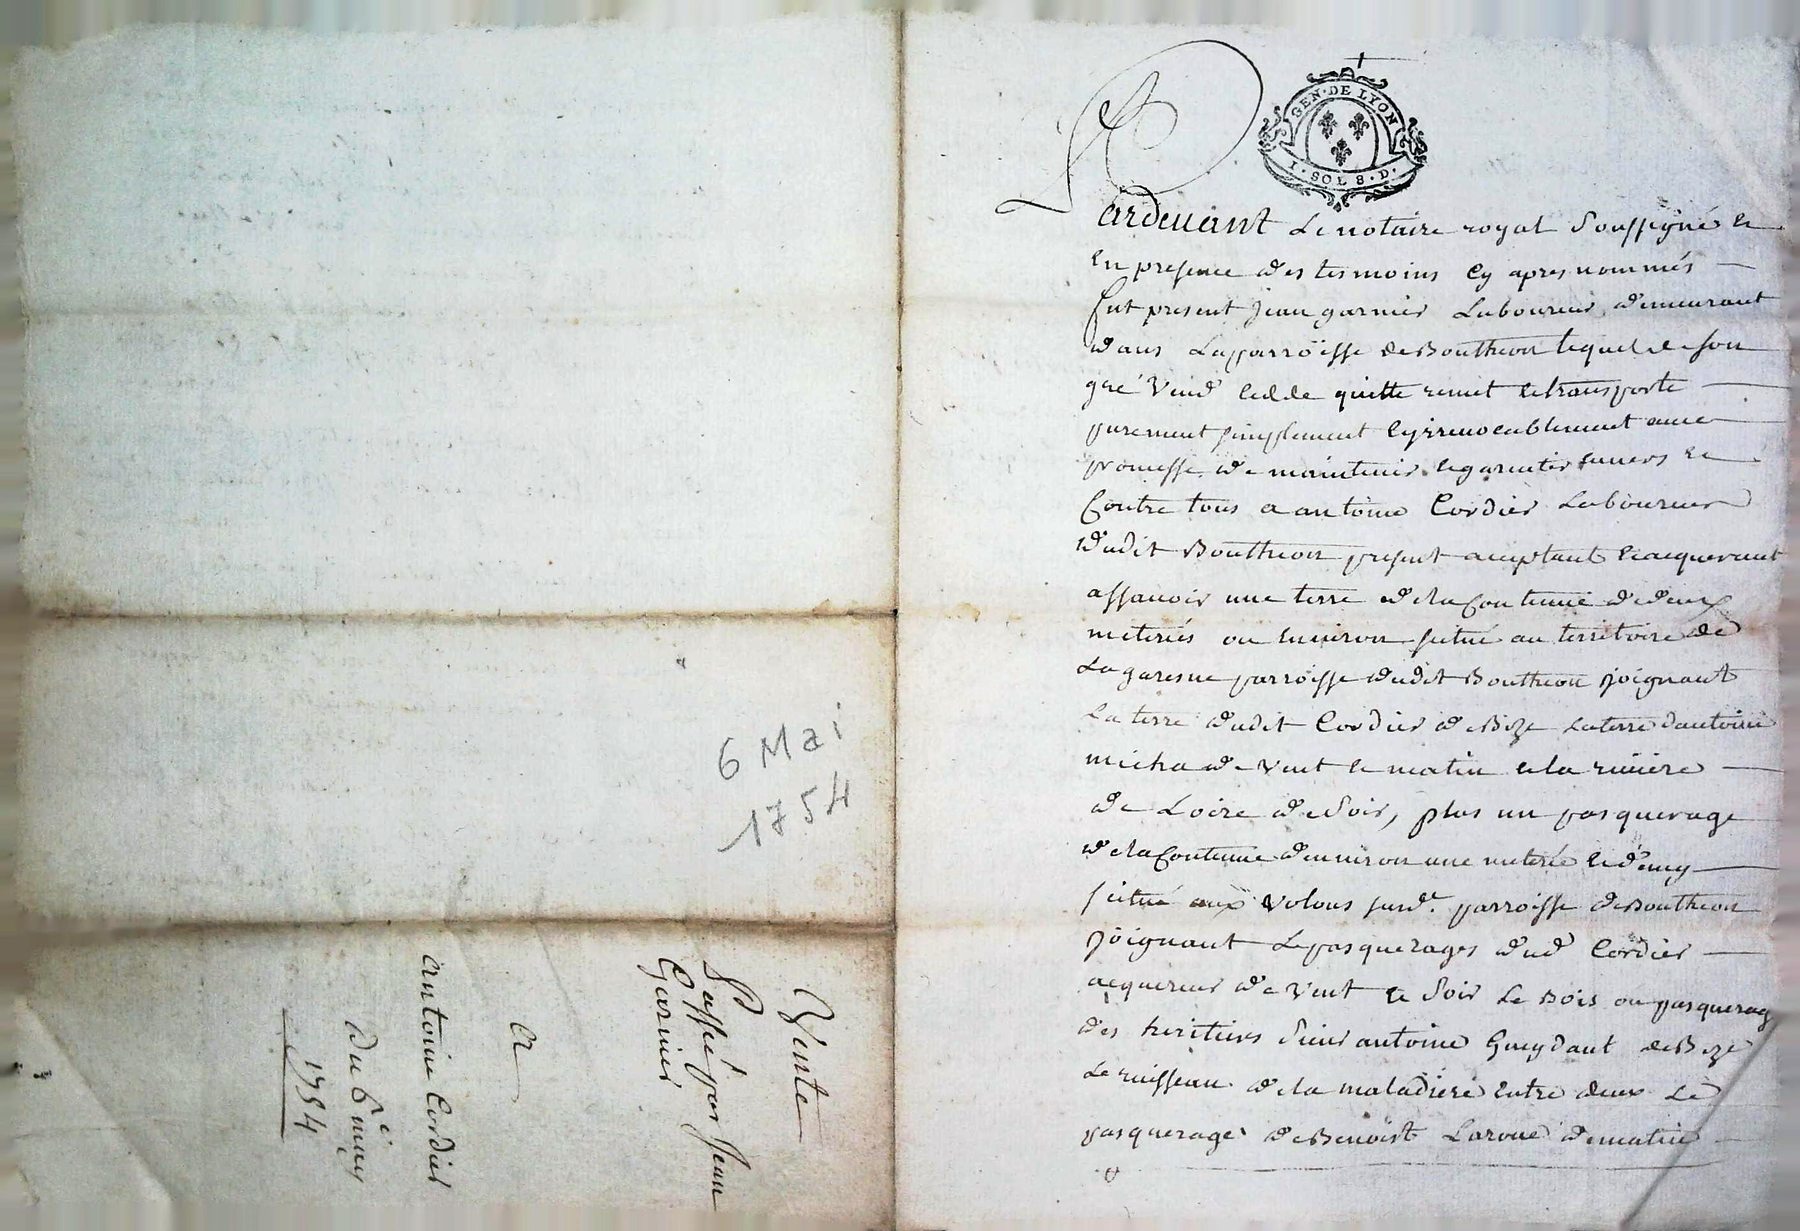 6 Mai
1754
Vente
Passée par Jean
Garnier
a
antoine Cordier
du 6e may
1754
GEN·DE LYON
I·SOL 8·D·
Pardevant Le notaire royal Soussigné et
En presence des tesmoins Cy apres nommés
fut present Jean garnier Laboureur demeurant
dans La parroisse de Boutheon lequel de son
gré Vend Cedde quitte remet et transporte
purement simplement et irrevocablement avec
promesse de maintenir et garentir Envers et
Contre tous a antoine Cordier Laboureur
dudit Boutheon present acceptant et acquerant
assavoir une terre de la Contenue de deux
meterés ou Environ situé au territoire de
La garenne parroisse dudit Boutheon joignant
La terre dudit Cordier de Bize La terre dantoine
micha de Vent et matin et la riviere
de Loire de Soir, plus un pasquerage
de la Contenue denviron une meteré et demy
situé aux Volons surde. parroisse de Boutheon
joignant Le pasquerages dud Cordier
acquereur de Vent et Soir Le Bois ou pasquerag
des heritiers Sieur antoine Gueydant de Bize
Le ruisseau de la maladiere Entre deux Le
pasquerage de Benoist Laroue de matin